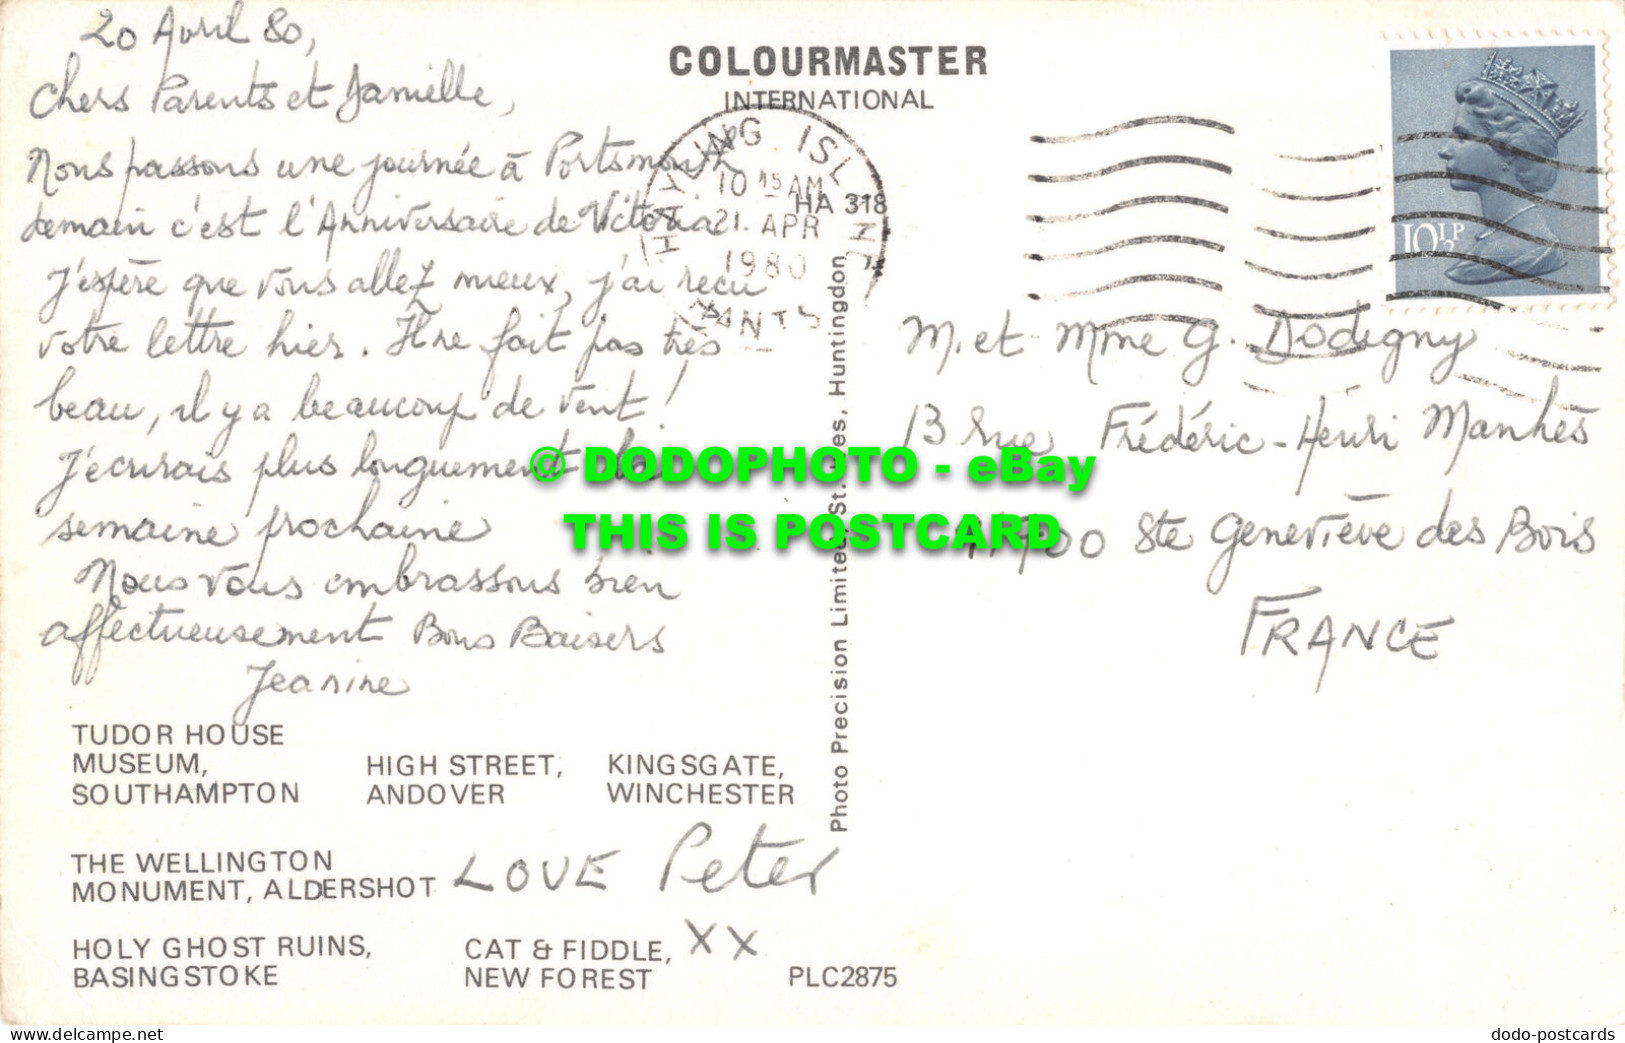 20 Avril 80,
Chers Parents et Danielle,
Nous passons une journée à Portsmouth
demain c'est l'Anniversaire de Victoria
J'espère que vous allez mieux, j'ai reçu
votre lettre hier. Il ne fait pas très
beau, il y a beaucoup de vent!
J'écrirais plus longuement la
semaine prochaine
Nous vous embrassons bien
affectueusement Bons Baisers
Jeanine
COLOURMASTER
INTERNATIONAL
HAYLING ISLAND
10 15 AM
21. APR
1980
HANTS
HA 318
10½P
M. et Mme G. Dodigny
13 rue Frédéric-Henri Manhès
700 Ste Geneviève des Bois
FRANCE
Photo Precision Limited, St. Ives, Huntingdon
© DODOPHOTO - eBay
THIS IS POSTCARD
TUDOR HOUSE
MUSEUM,
SOUTHAMPTON
HIGH STREET,
ANDOVER
KINGSGATE,
WINCHESTER
THE WELLINGTON
MONUMENT, ALDERSHOT
LOVE Peter
XX
HOLY GHOST RUINS,
BASINGSTOKE
CAT & FIDDLE,
NEW FOREST
PLC2875
www.delcampe.net
dodo-postcards